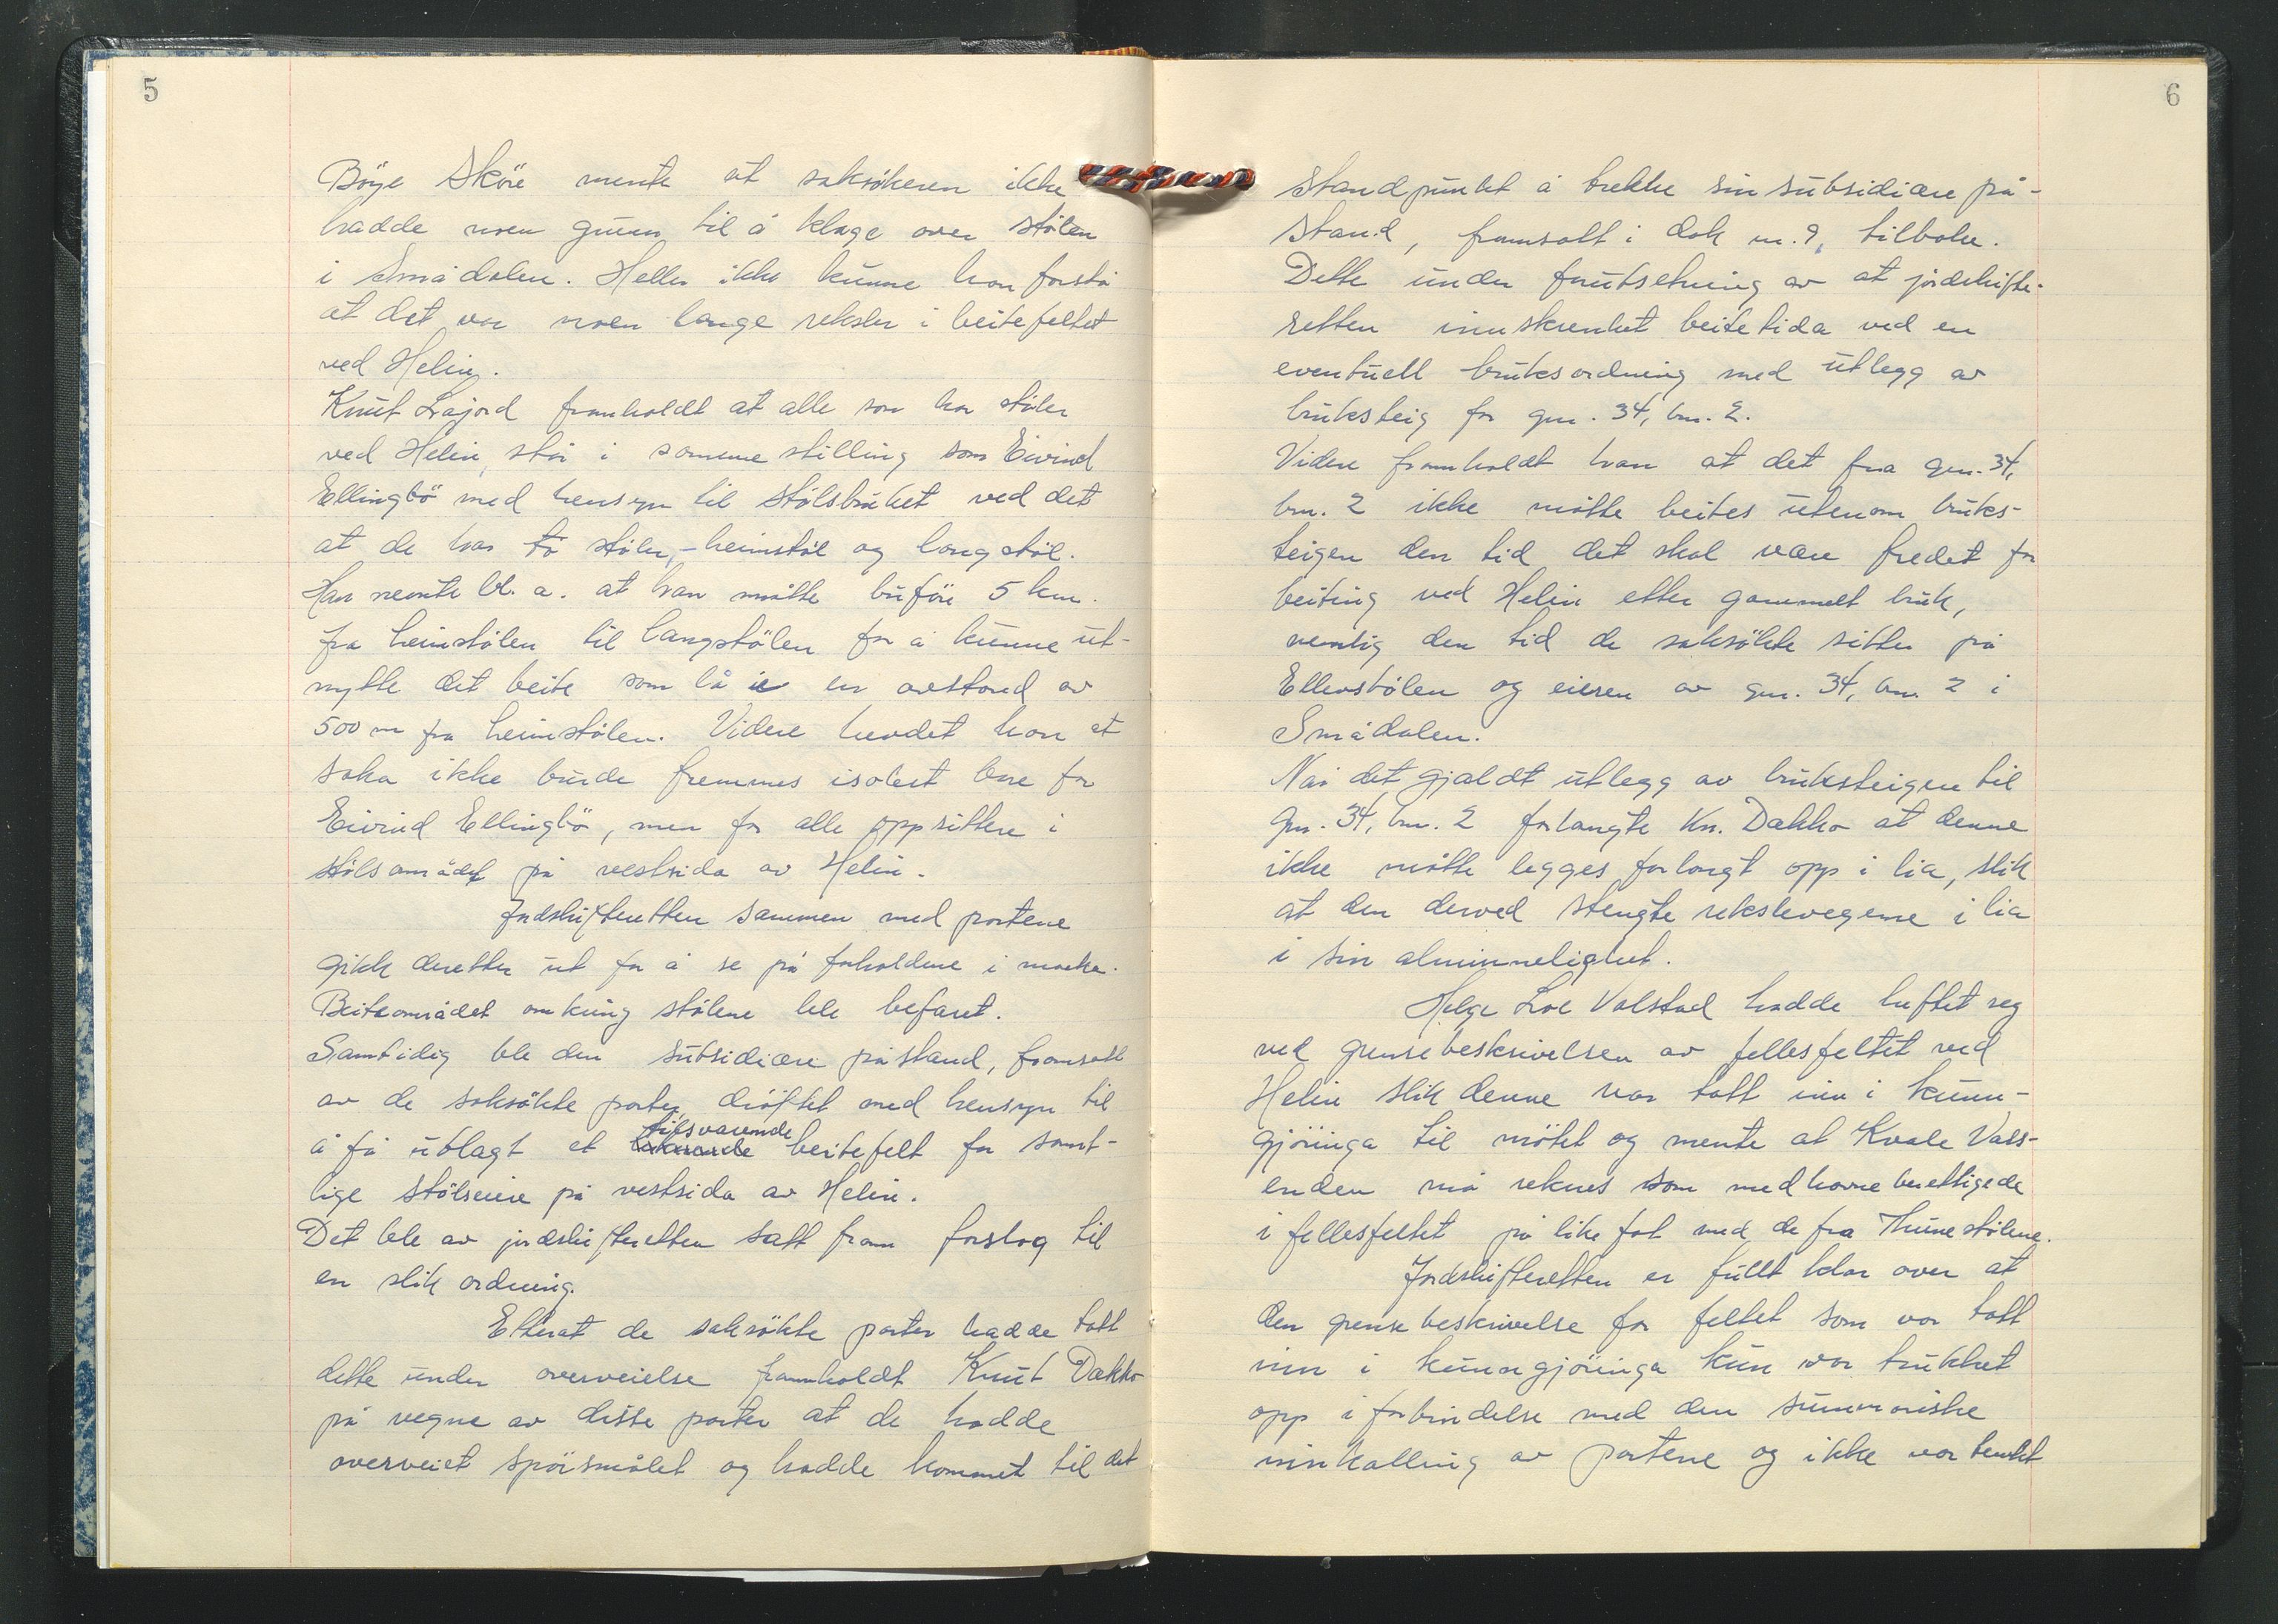 5
Böye Sköre mente at saksökeren ikke
hadde noen grunn til å klage over stölen
i Smådalen. Heller ikke kunne han forstå
at det var noen lange rekster i beitefeltet
ved Helin.
Knut Lajord framholdt at alle som har stöler
ved Helin, står i samme stilling som Eivind
Ellingbö med hensyn til stölsbruket ved det
at de har to stöler, - heimstöl og langstöl.
Han nemte bl. a. at han måtte buföre 5 km.
fra heimstölen til langstölen for å kunne ut-
nytte det beite som lå i en avstand av
500 m fra heimstölen. Videre hevdet han at
saka ikke burde fremmes isolert bare for
Eivind Ellingbö, men for alle oppsittere i
stölsområdet på vestsida av Helin.
Jordskifteretten sammen med partene
gikk deretter ut for å se på forholdene i marka.
Beiteområdet omkring stölene ble befaret.
Samtidig ble den subsidiære påstand, framsatt
av de saksökte parter, dröftet med hensyn til
å få utlagt et tilsvarende beitefelt for samt-
lige stölseiere på vestsida av Helin.
Det ble av jordskifteretten satt fram forslag til
en slik ordning.
Etterat de saksökte parter hadde tatt
dette under overveielse framholdt Knut Dakko
på vegne av disse parter at de hadde
overveiet spörsmålet og hadde kommet til det
6
standpunkt å trekke sin subsidiære på-
stand, framsatt i dok nr. 9, tilbake.
Dette under forutsetning av at jordskifte-
retten innskrenket beitetida ved en
eventuell bruksordning med utlegg av
bruksteig for gnr. 34, bnr. 2.
Videre framholdt han at det fra gnr. 34,
bnr. 2 ikke måtte beites utenom bruks-
teigen den tid det skal være fredet for
beiting ved Helin etter gammelt bruk,
nemlig den tid de saksökte sitter på
Ellenstölen og eieren av gnr. 34, bnr. 2 i
Smådalen.
Når det gjaldt utlegg av bruksteigen til
Gnr. 34, bnr. 2 forlangte Kn. Dakko at denne
ikke måtte legges forlangt opp i lia, slik
at den derved stengte rekstevegene i lia
i sin alminnelighet.
Helge Loe Valstad hadde heftet seg
ved grensebeskrivelsen av fellesfeltet ved
Helin slik denne var tatt inn i kunn-
gjöringa til mötet og mente at Kvale Vass-
enden må reknes som medhavneberettigede
i fellesfeltet på like fot med de fra Thunestölene.
Jordskifteretten er fullt klar over at
den grensebeskrivelse for feltet som var tatt
inn i kunngjöringa kun var trukket
opp i forbindelse med den summariske
innkalling av partene og ikke var tenkt